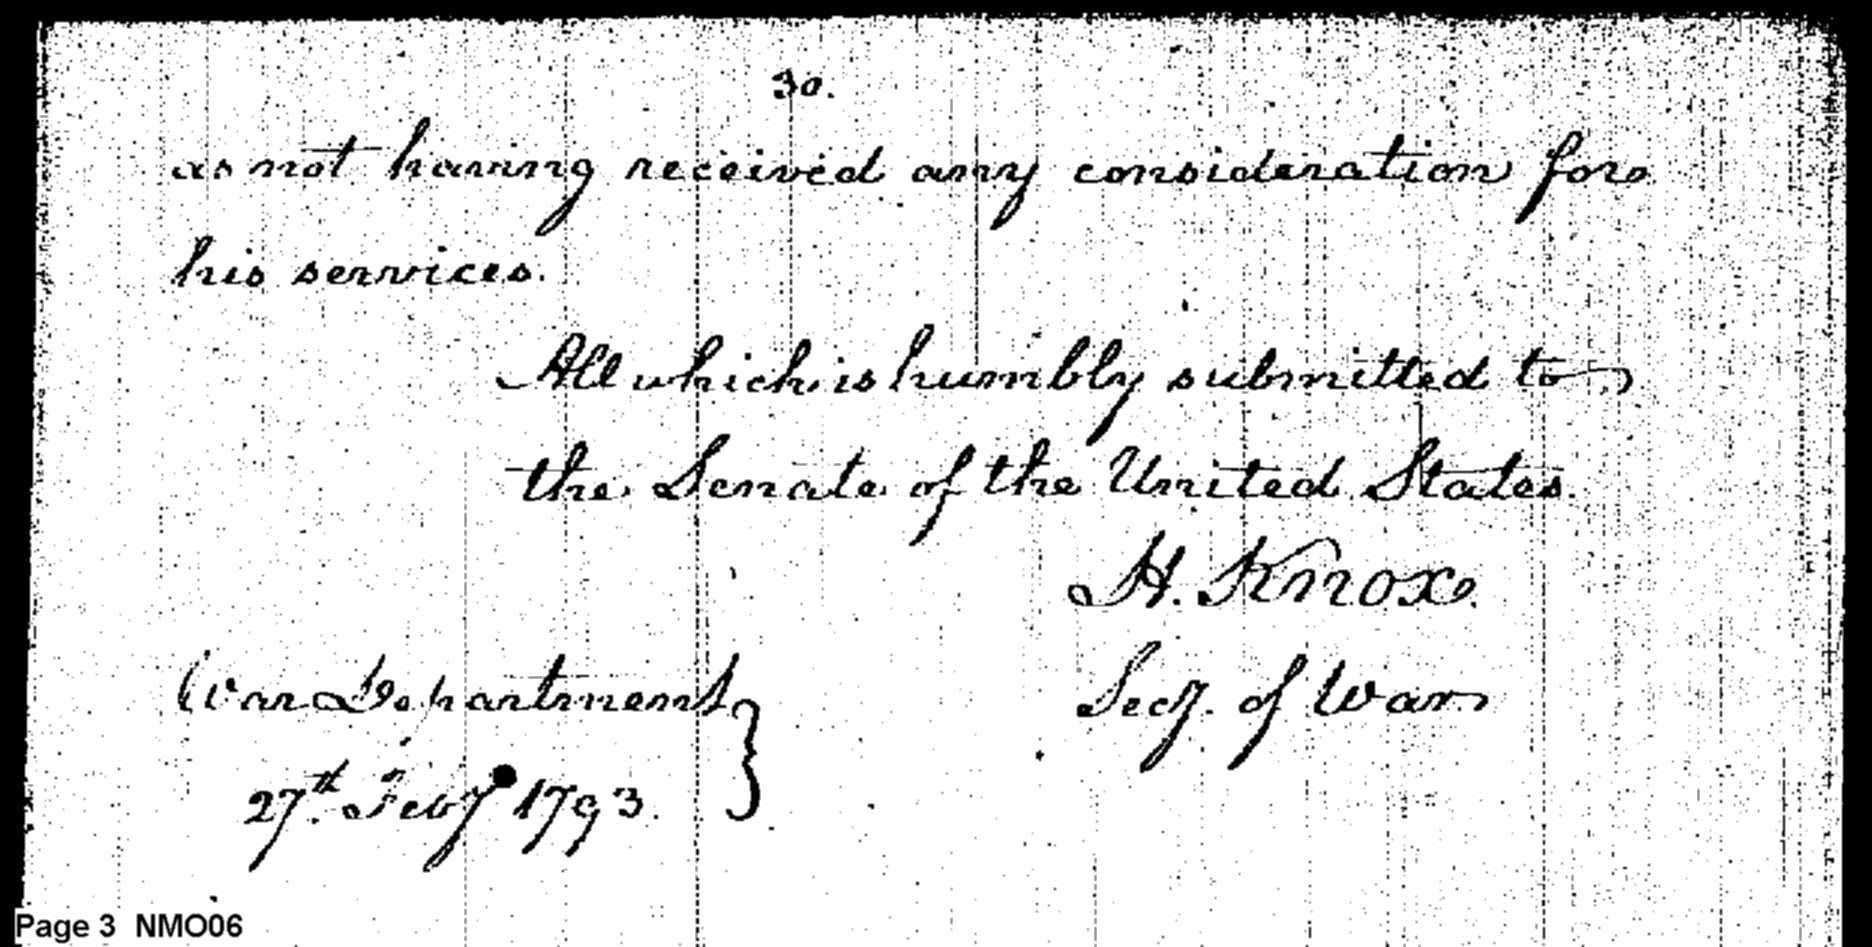 30.
as not having received any consideration for
his services.
All which is humbly submitted to
the Senate of the United States.
H. Knox.
War Department
Secy. of War
27th. Feby 1793.
Page 3 NMO06